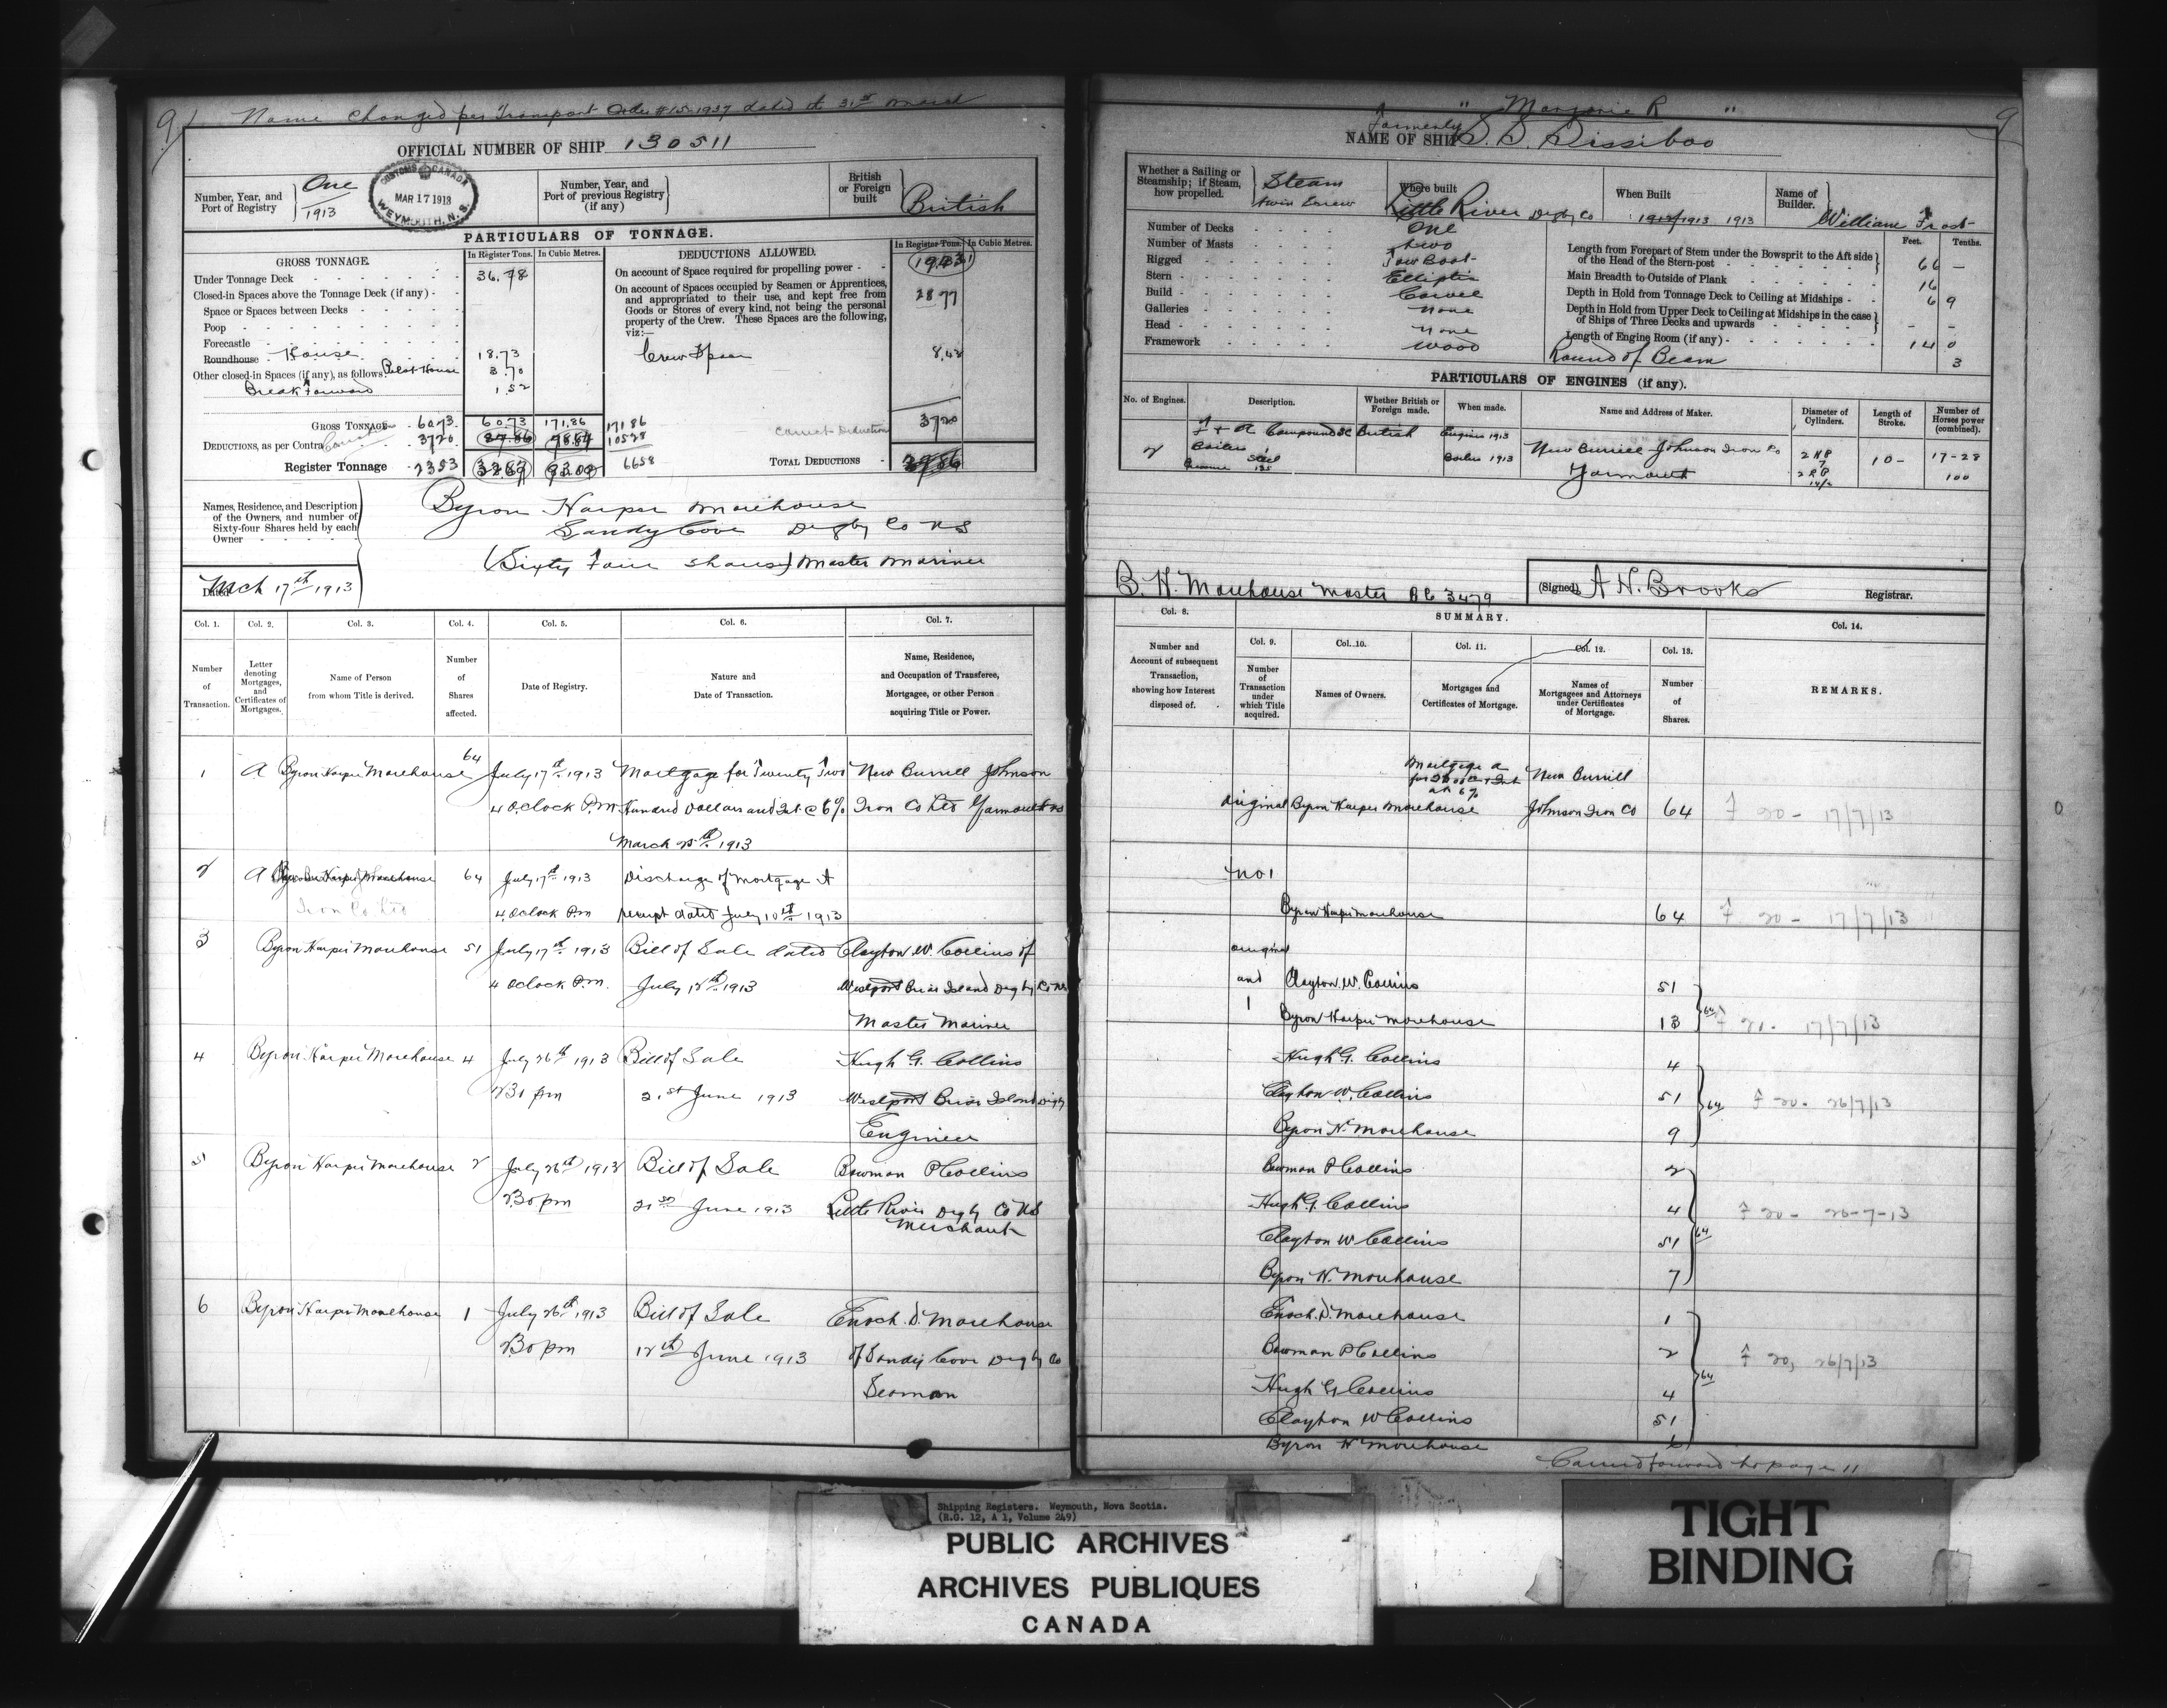 9
Name Changed per Transport Order #15-1937 dated at 31st March
OFFICIAL NUMBER OF SHIP 130511
Number, Year, and Port of Registry
One
1913
CUSTOMS CANADA
MAR 17 1913
WEYMOUTH, N.S.
Number, Year, and Port of previous Registry (if any)
British or Foreign built
British
PARTICULARS OF TONNAGE.
GROSS TONNAGE.
In Register Tons.
In Cubic Metres.
Under Tonnage Deck 36.78
Closed-in Spaces above the Tonnage Deck (if any)
Space or Spaces between Decks
Poop
Forecastle
Roundhouse House 18.73
Other closed-in Spaces (if any), as follows: Pilot House 3.70
Break Forward 1.52
GROSS TONNAGE 60.73 60.73 171.86 171 86
DEDUCTIONS, as per Contra 37 20 105 28
Register Tonnage 23 53 66 58
DEDUCTIONS ALLOWED.
In Register Tons.
In Cubic Metres.
On account of Space required for propelling power
On account of Spaces occupied by Seamen or Apprentices, and appropriated to their use, and kept free from Goods or Stores of every kind, not being the personal property of the Crew. These Spaces are the following, viz:—
28 77
Crew Space 8.43
Correct Deduction 37 20
TOTAL DEDUCTIONS
Names, Residence, and Description of the Owners, and number of Sixty-four Shares held by each Owner
Byron Harper Morehouse
Sandy Cove Digby Co NS
(Sixty Four shares) Master Mariner
Dated Mch 17th 1913
Col. 1.
Col. 2.
Col. 3.
Col. 4.
Col. 5.
Col. 6.
Col. 7.
Number of Transaction.
Letter denoting Mortgages, and Certificates of Mortgages.
Name of Person from whom Title is derived.
Number of Shares affected.
Date of Registry.
Nature and Date of Transaction.
Name, Residence, and Occupation of Transferee, Mortgagee, or other Person acquiring Title or Power.
1 A Byron Harper Morehouse 64 July 17th 1913 Mortgage for Twenty Two New Burrell Johnson
4 Oclock P.m. Hundred Dollars and Int @ 6% Iron Co Ltd Yarmouth NS
March 25th 1913
2 A Byron Harper Morehouse 64 July 17th 1913 Discharge of Mortgage A
Iron Co Ltd 4 Oclock P.m receipt dated July 10th 1913
3 Byron Harper Morehouse 51 July 17th 1913 Bill of Sale dated Clayton W. Collins of
4 Oclock P.m. July 12th 1913 Westport Brier Island Digby Co NS
Master Mariner
4 Byron Harper Morehouse 4 July 26th 1913 Bill of Sale Hugh G. Collins
21st June 1913 Westport Brier Island Digby
Engineer
5 Byron Harper Morehouse 2 July 26th 1913 Bill of Sale Bowman P Collins
230 pm 21st June 1913 Little River Digby Co NS
Merchant
6 Byron Harper Morehouse 1 July 26th 1913 Bill of Sale Enoch. D. Morehouse
230 pm 12th June 1913 of Sandy Cove Digby Co
Seaman
"Marjorie R"
9
Formerly
NAME OF SHIP S. S. Sissiboo
Whether a Sailing or Steamship; if Steam, how propelled.
Steam
twin Screw
Where built
Little River Digby Co
When Built
1913
Name of Builder.
William Frost
Number of Decks One
Number of Masts two
Rigged Tow Boat
Stern Elliptic
Build Carvel
Galleries none
Head none
Framework wood
Feet.
Tenths.
Length from Forepart of Stem under the Bowsprit to the Aft side of the Head of the Stern-post 66 —
Main Breadth to Outside of Plank 16
Depth in Hold from Tonnage Deck to Ceiling at Midships 6 9
Depth in Hold from Upper Deck to Ceiling at Midships in the case of Ships of Three Decks and upwards - -
Length of Engine Room (if any) 14 0
Round of Beam 3
PARTICULARS OF ENGINES (if any).
No. of Engines.
Description.
Whether British or Foreign made.
When made.
Name and Address of Maker.
Diameter of Cylinders.
Length of Stroke.
Number of Horses power (combined).
2
Compound
Boilers
Steel
British
Engines 1913
Boilers 1913
New Burrell-Johnson Iron Co
Yarmouth
10-
17-28
100
B. H. Morehouse Master
3479
(Signed) A H. Brooks
Registrar.
Col. 8.
SUMMARY.
Col. 9.
Col. 10.
Col. 11.
Col. 12.
Col. 13.
Col. 14.
Number and Account of subsequent Transaction, showing how Interest disposed of.
Number of Transaction under which Title acquired.
Names of Owners.
Mortgages and Certificates of Mortgage.
Names of Mortgagees and Attorneys under Certificates of Mortgage.
Number of Shares.
REMARKS.
Mortgage A
at 6%
New Burrill
original Byron Harper Morehouse Johnson Iron Co 64 F 20 - 17/7/13
no 1
Byron Harper Morehouse 64 F 20 - 17/7/13
original
and Clayton. W. Collins 51
1 Byron Harper Morehouse 13 64 F 21. 17/7/13
Hugh G. Collins 4
Clayton W. Collins 51 64 F 20. 26/7/13
Byron H. Morehouse 9
Bowman P Collins 2
Hugh G. Collins 4 F 20 - 26-7-13
Clayton W Collins 51 64
Byron H. Morehouse 7
Enoch. D. Morehouse 1
Bowman P Collins 2 F 20, 26/7/13
Hugh G Collins 4 64
Clayton W Collins 51
Byron H Morehouse 6
Carried forward to page 11
Shipping Registers. Weymouth, Nova Scotia.
(R.G. 12, A 1, Volume 249)
PUBLIC ARCHIVES
ARCHIVES PUBLIQUES
CANADA
TIGHT
BINDING